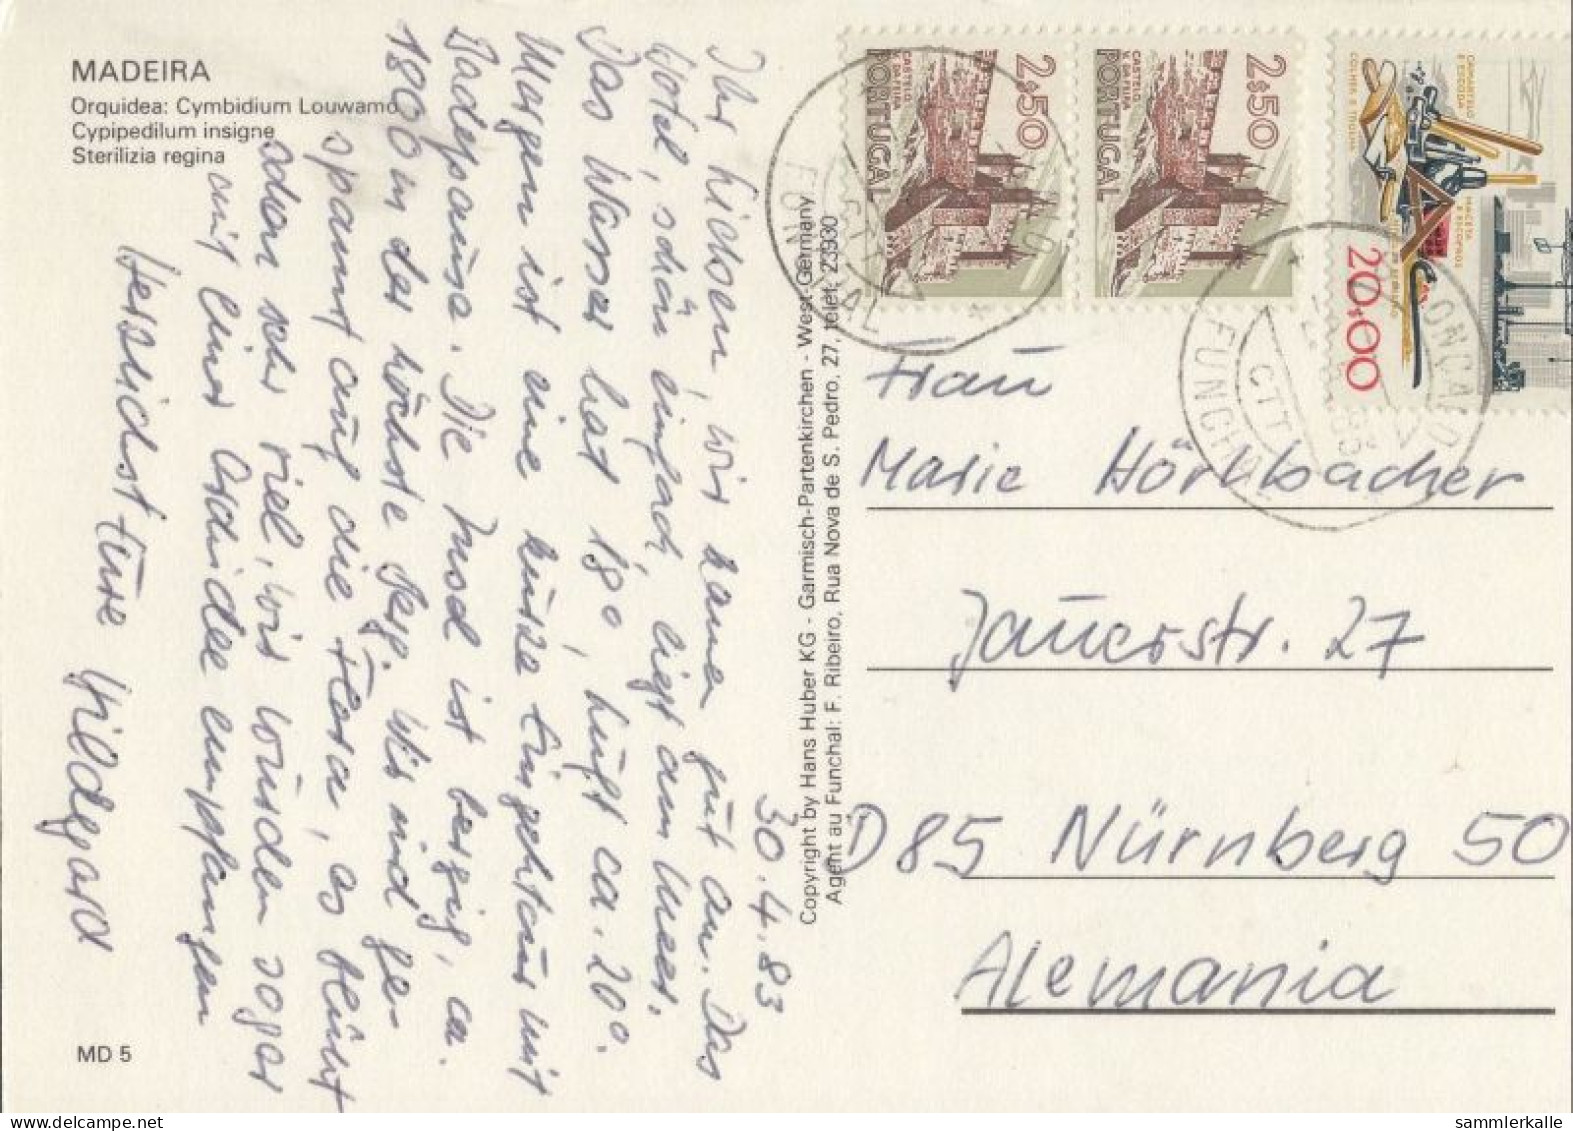 MADEIRA
Orquidea: Cymbidium Louwamo
Cypipedilum insigne
Sterilizia regina
30.4.83
Ihr Lieben, wir kamen gut an. Das
Hotel, schön einfach, liegt am Meer.
Das Wasser hat 18°, Luft ca. 20°.
Morgen ist eine kurze Tour mit
Badepause. Die Insel ist bergig, ca.
1800 m der höchste Berg. Wir sind ge-
spannt auf die Flora, es blüht
schon sehr viel, wir wurden sogar
mit einer Orchidee empfangen
Herzlichst Eure Hildegard
MD 5
Copyright by Hans Huber KG - Garmisch-Partenkirchen - West-Germany
Agent au Funchal: F. Ribeiro, Rua Nova de S. Pedro, 27, telef. 23930
CASTELO
V. DA FEIRA
2$50
PORTUGAL
CASTELO
V. DA FEIRA
2$50
PORTUGAL
20$00
FUNCHAL
CTT
FUNCHAL
CTT
Frau
Marie Hörlbacher
Jauerstr. 27
D 85 Nürnberg 50
Alemania
sammlerkalle